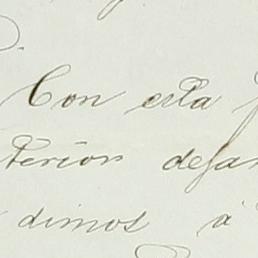 Con esta
terior dejar
dimos á